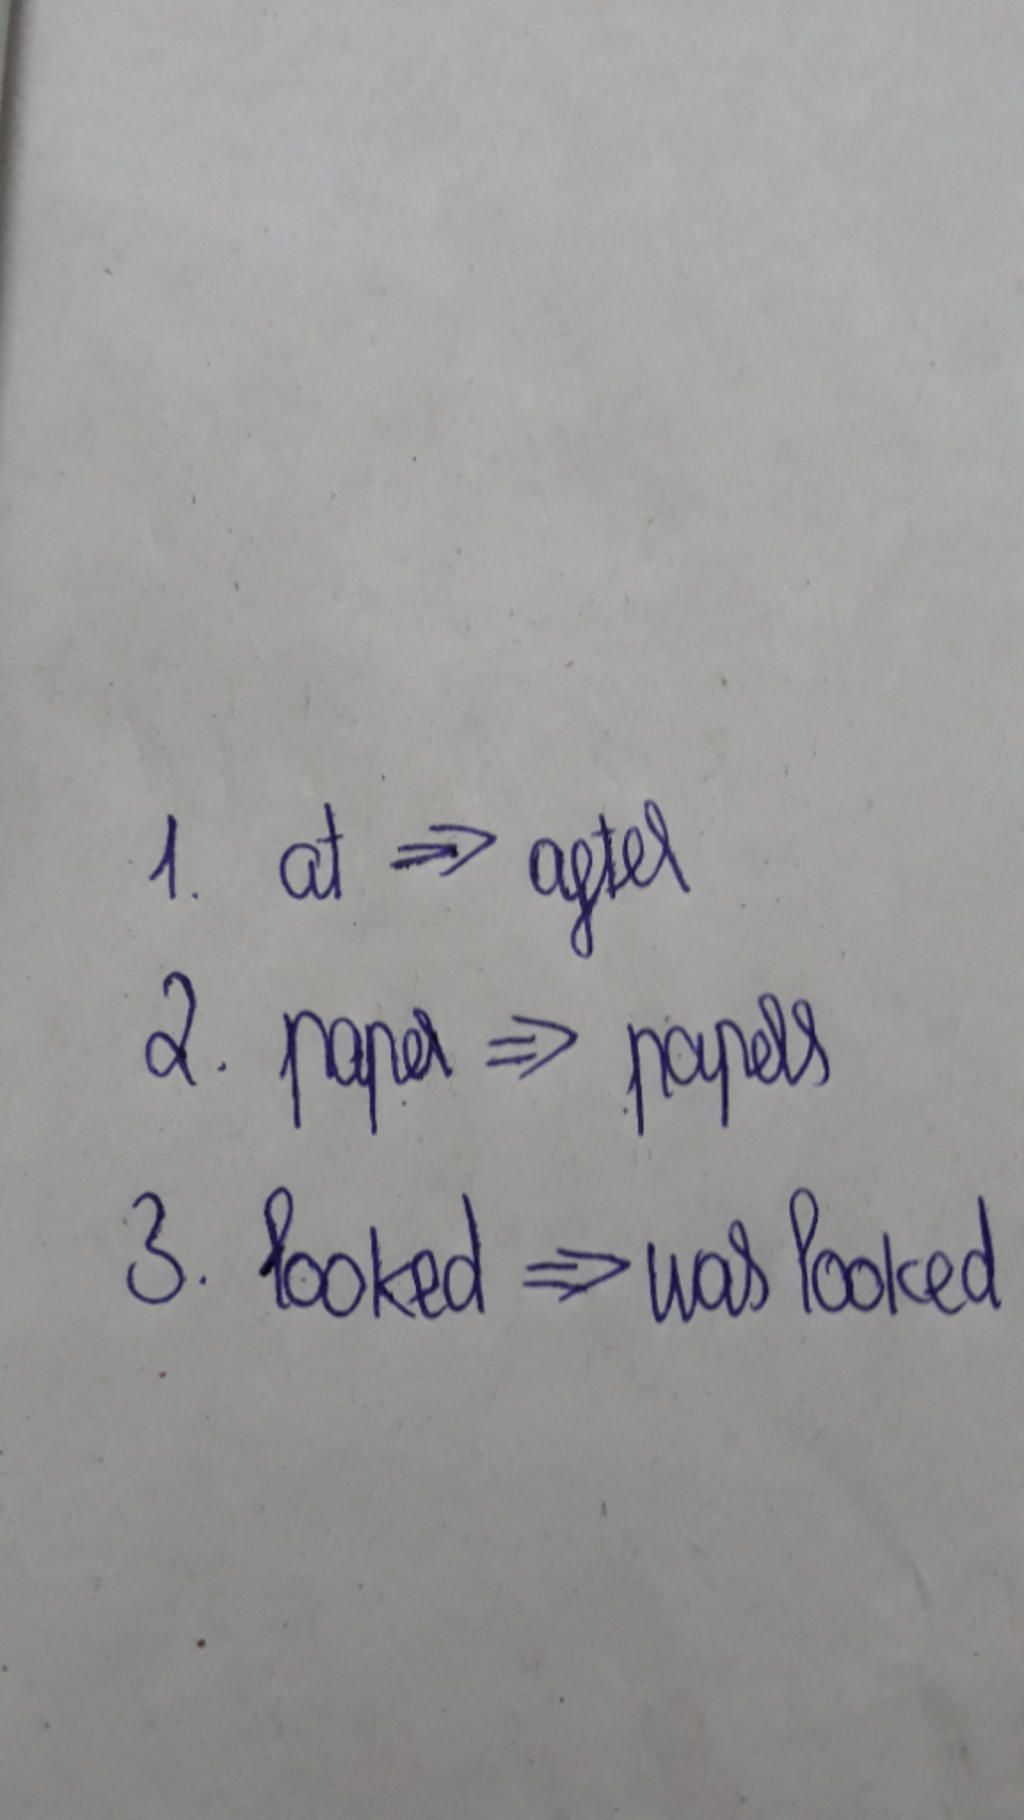 1. at ⇒ after
2. paper ⇒ papers
3. looked ⇒ was looked